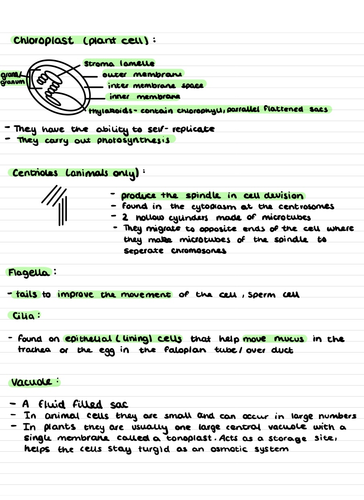 Chloroplast (plant cell) :
Stroma lamelle
outer membrane
grana/
granum
inter membrane space
inner membrane
thylakoids - contain chlorophyll, parrallel flattened sacs
- They have the ability to self-replicate
- They carry out photosynthesis
Centrioles (animals only) :
- produce the spindle in cell division
- found in the cytoplasm at the centrosomes
- 2 hollow cylinders made of microtubes
- They migrate to opposite ends of the cell where
they make microtubes of the spindle to
seperate chromosones
Flagella :
- tails to improve the movement of the cell, sperm cell
Cilia :
- found on epithelial (lining) cells that help move mucus in the
trachea or the egg in the falopian tube / over duct
Vacuole :
- A fluid filled sac
- In animal cells they are small and can occur in large numbers
- In plants they are usually one large central vacuole with a
single membrane called a tonoplast. Acts as a storage site,
helps the cells stay turgid as an osmotic system